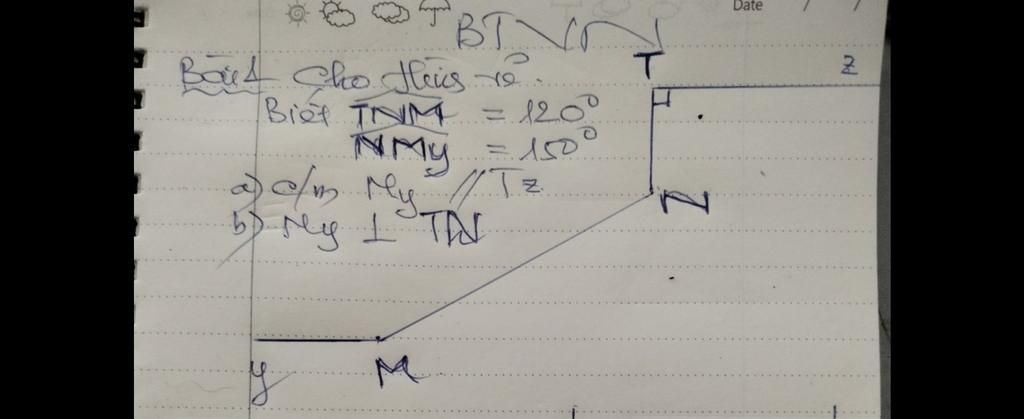 Date / /
BTVN
Bài 1 Cho hình vẽ.
Biết TNM = 120°
NMy = 150°
a) c/m My // Tz
b) My ⊥ TN
T
z
N
y
M